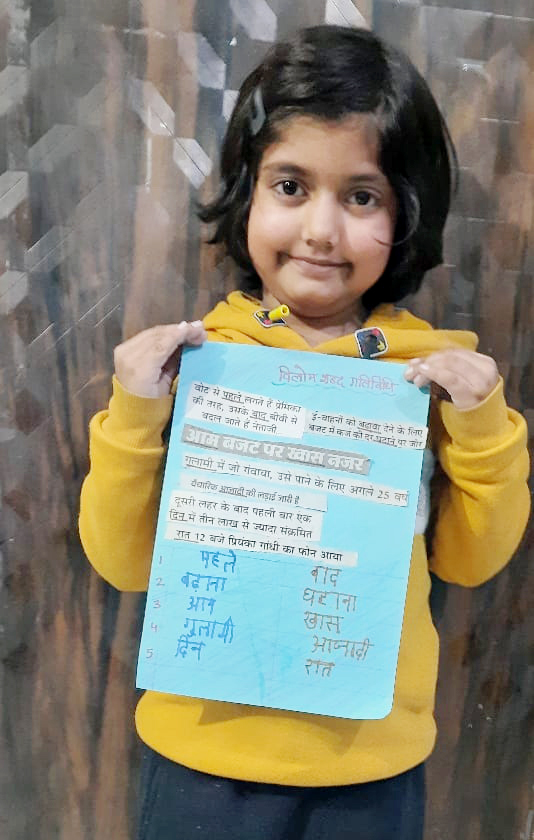 विलोम शब्द गतिविधि
वोट से पहले लगते हैं प्रेमिका
की तरह, उसके बाद बीवी से
बदल जाते हैं नेताजी
ई-वाहनों को बढ़ावा देने के लिए
बजट में कर्ज की दर घटाने पर जोर
आम बजट पर खास नजर
गुलामी में जो गंवाया, उसे पाने के लिए अगले 25 वर्ष
वैचारिक आजादी की लड़ाई जारी है
दूसरी लहर के बाद पहली बार एक
दिन में तीन लाख से ज्यादा संक्रमित
रात 12 बजे प्रियंका गांधी का फोन आया
1 पहले बाद
2 बढ़ाना घटाना
3 आम खास
4 गुलामी आज़ादी
5 दिन रात